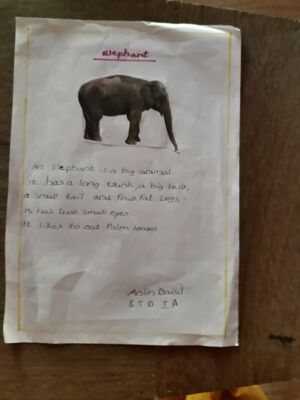 Elephant
An Elephant is a big animal
it has a long trunk, a big belly,
a small tail and four Fat Legs.
It has two small eyes
It likes to eat Palm leaves
S T D II A